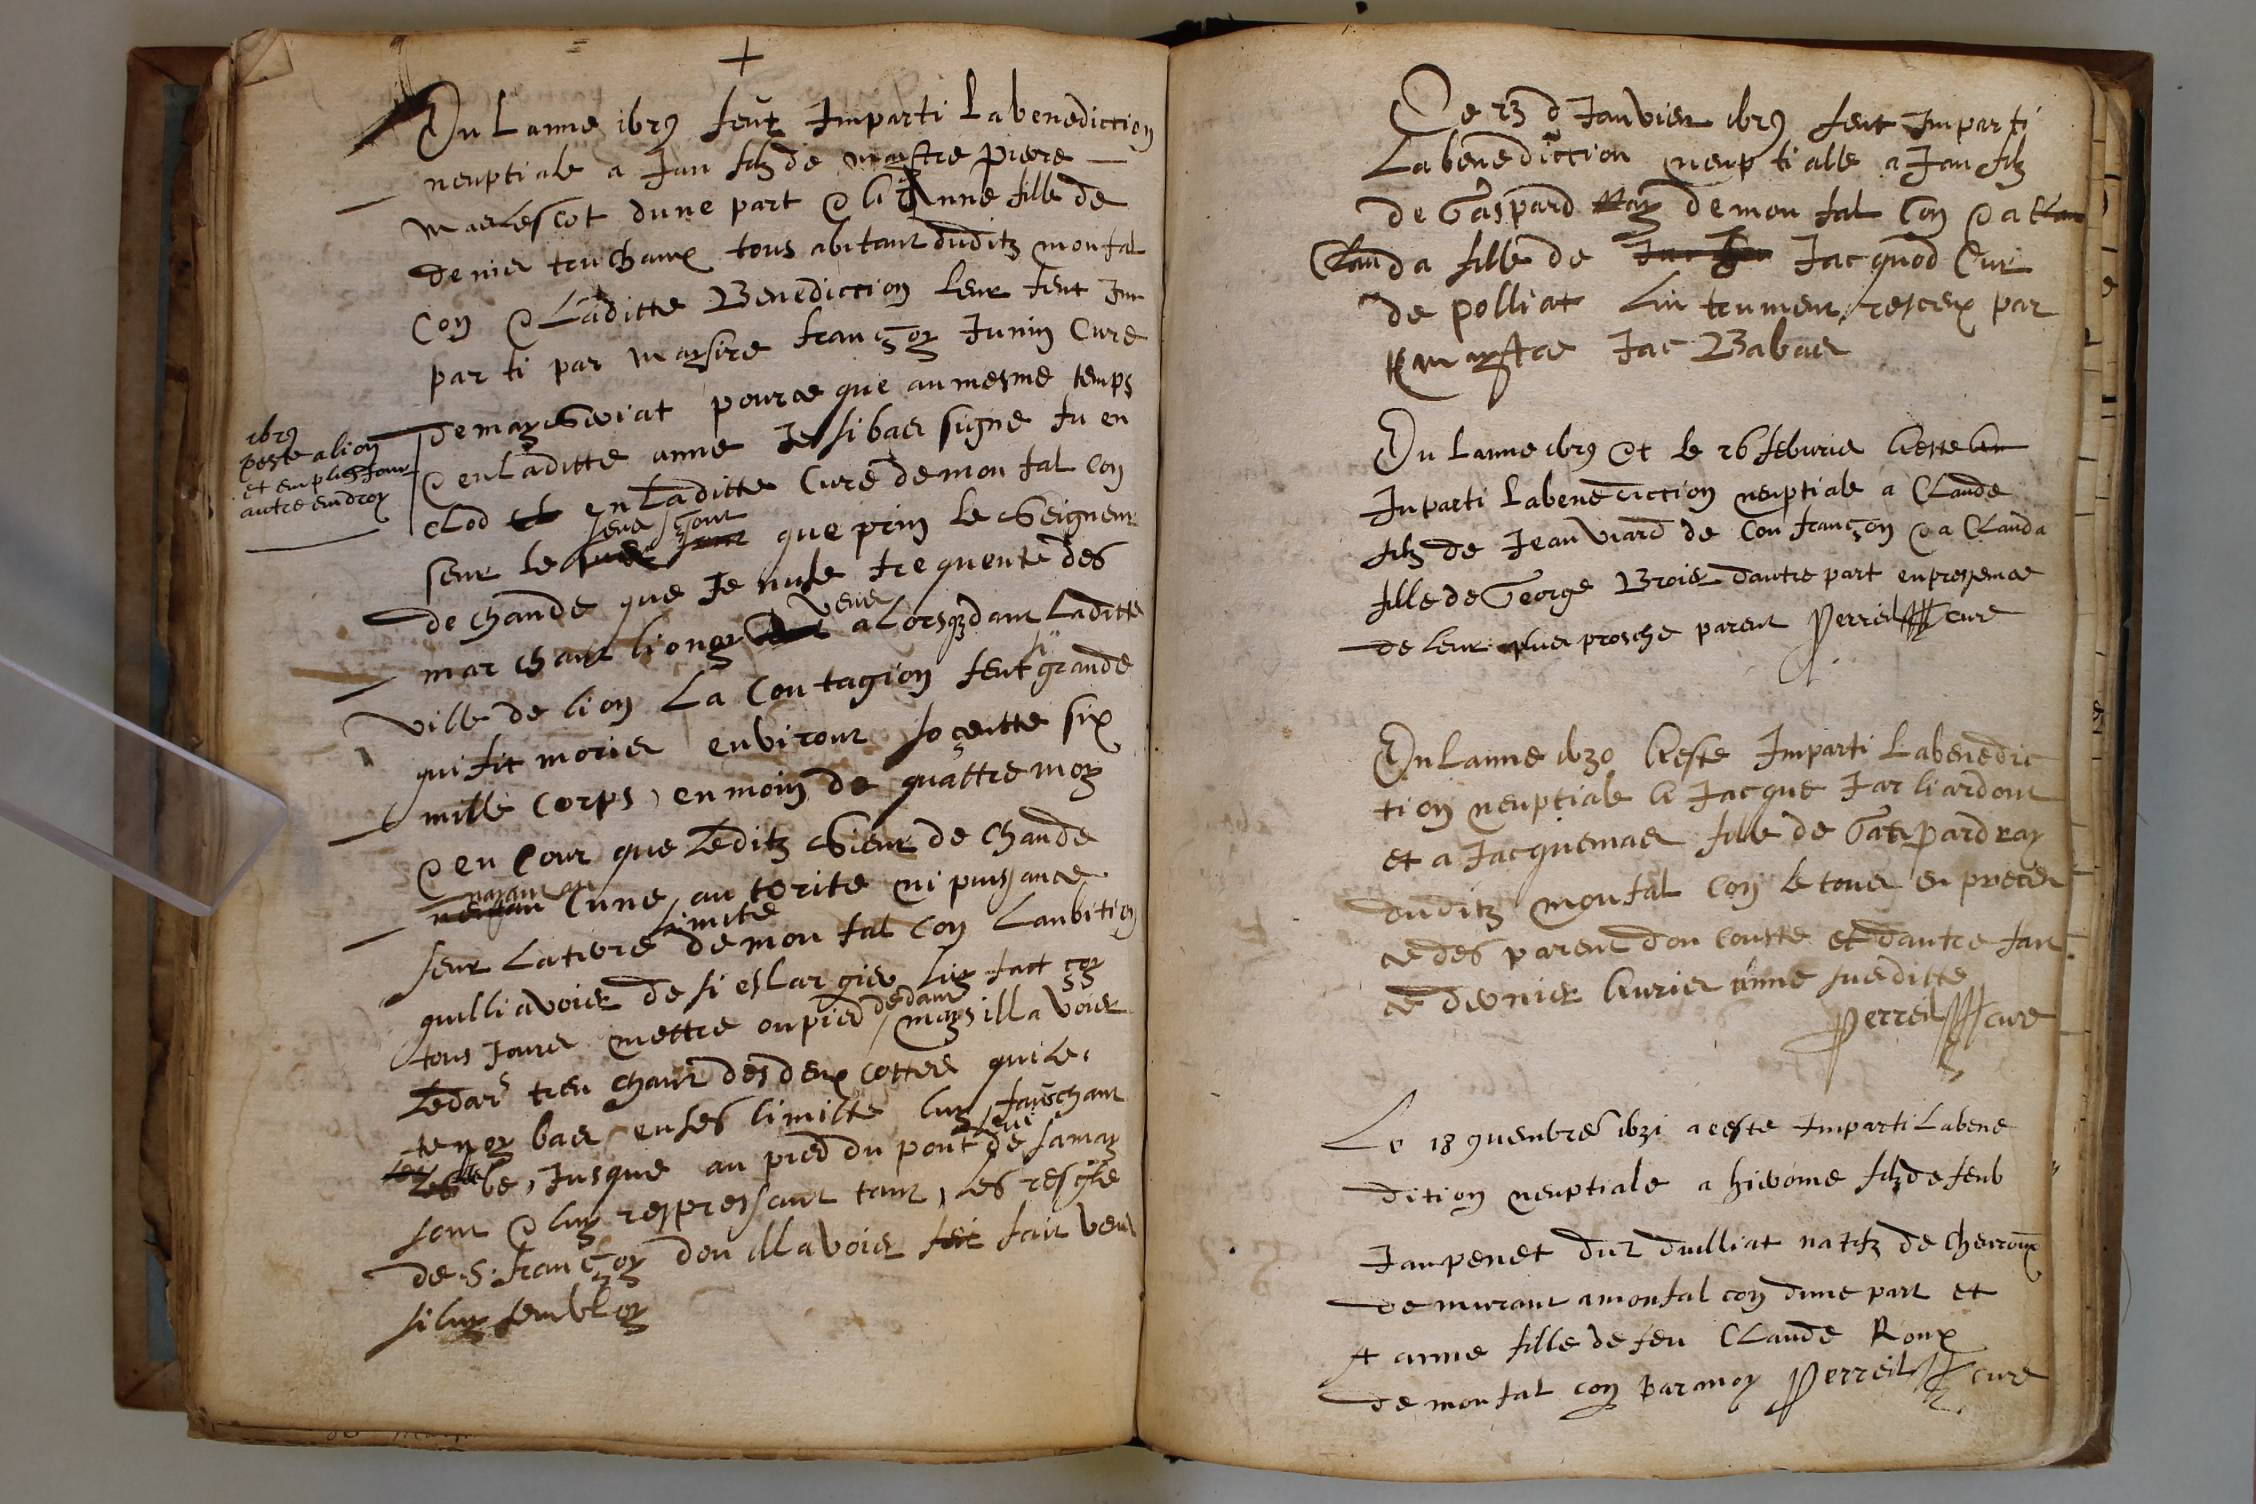 +
En Lanne 1629 feut Imparti Labenediction
neuptiale a Jan filz de maistre pierre
marescot dune part & a Anne fille de
denier truchaux tous abitant duditz monfal
Con & Laditte Benediction leur feut Im
parti par maysire françoy Junin Cure
de mayseriat pource que au mesme temps
& en Laditte anne Je sibaes signe fu en
clod en Laditte Cure de monfal con
seur le seul jour que prin le Seigneur
de chande que Je nuse frequente des
marchant lionoy venu alorsqz dans Laditte
ville de lion La Contagion feut si grande
qui fit morier environt soçentte six
mille Corps, en moin de quattre moy
& en Cour que Leditz Sieur de Chande
nayant aucune autorite ni puissance
seur Latiere limite de monfal Con Lanbition
quilli avoier de si eslargier luy fact çoy
tous Jours mettre ou pied dedans mays ill avoier
Ledar treuchant des deux cottes qui le
tenoy baes en ses limitte luy fauchant
les able, Jusque au pied du pont de Lamay
son & luy respressant tant, les resgle
de S. françoy dou ill avoier fait veus
si luy sembloy
1629
peste a lion
et en plusieur
autre endroy
Ce 23 d Janvier 1629 feut Imparti
Labenediction neuptialle a Jan filz
de Gaspard Ray de monfal Con & a
Clauda fille de Jacquod Cur
de polliat Lintrument resceux par
maystre Jac Babaes
En Lanne 1629 et le 26 feburie a este
Inparti Labenediction neuptiale a Claude
filz de Jean viard de Confrançon & a Clauda
fille de George Broier dautre part en presence
de leur plus prosche parent Perreil cure
En Lanne 1630 a este Imparti Labenedic
tion neuptiale a Jacque Jarliardont
et a Jacquemaes fille de Gaspard ray
duditz monfal Con le tous en presen
ce des parent dou Coutte et dautre fan
ce dernier avrier anne sueditte
Perreil cure
Le 18 9uenbre 1631 a este Imparti Labene
dition neuptiale a hierome filz de feub
Jan penet dut duilliat natifz de Cheiroux
demurant a monfal con dune part et
A anne fille de feu Claude Roux
de monfal con par moy Perreil cure